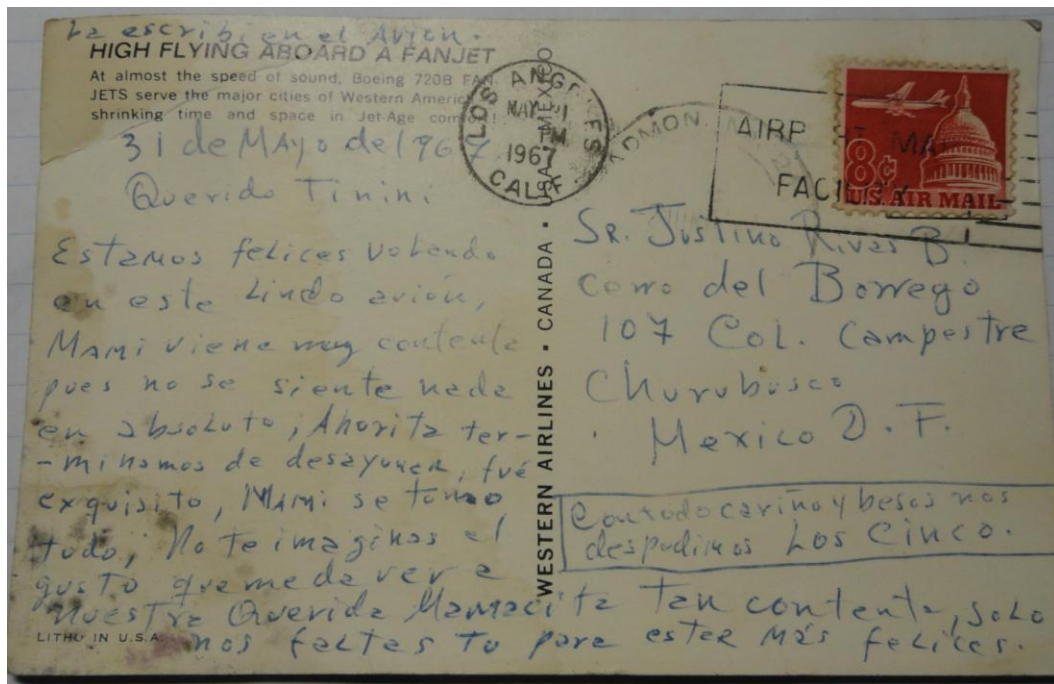 La escribi en el Avion.
HIGH FLYING ABOARD A FANJET
At almost the speed of sound, Boeing 720B FAN
JETS serve the major cities of Western America
shrinking time and space in Jet-Age comfort!
31 de MAyo de 1967
Querido Tinini
Estamos felices volando
en este Lindo avión,
Mami viene muy contenta
pues no se siente nada
en absoluto, Ahorita ter-
-minamos de desayunar, fué
exquisito, Mami se tomo
todo, No te imaginas el
gusto que me da ver a
nuestra Querida Mamacita tan contenta, solo
nos faltas tu para estar más felices.
LITHO IN U.S.A.
WESTERN AIRLINES • CANADA • USA • MEXICO
LOS ANGELES
MAY 31
PM
1967
CALIF
AIRPORT MAIL
FACILITY
8¢
U.S. AIR MAIL
Sr. Justino Rivas B.
Cerro del Borrego
107 Col. Campestre
Churubusco
Mexico D.F.
Con todo cariño y besos nos
despedimos Los Cinco.